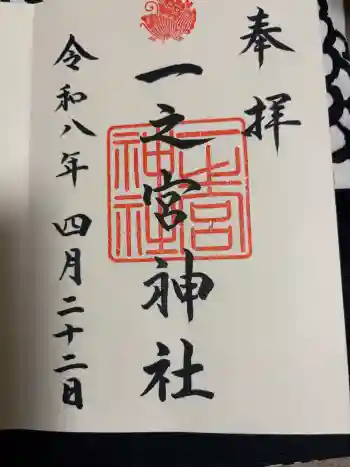 奉拝
一之宮神社
令和八年四月二十二日
一之宮
神社